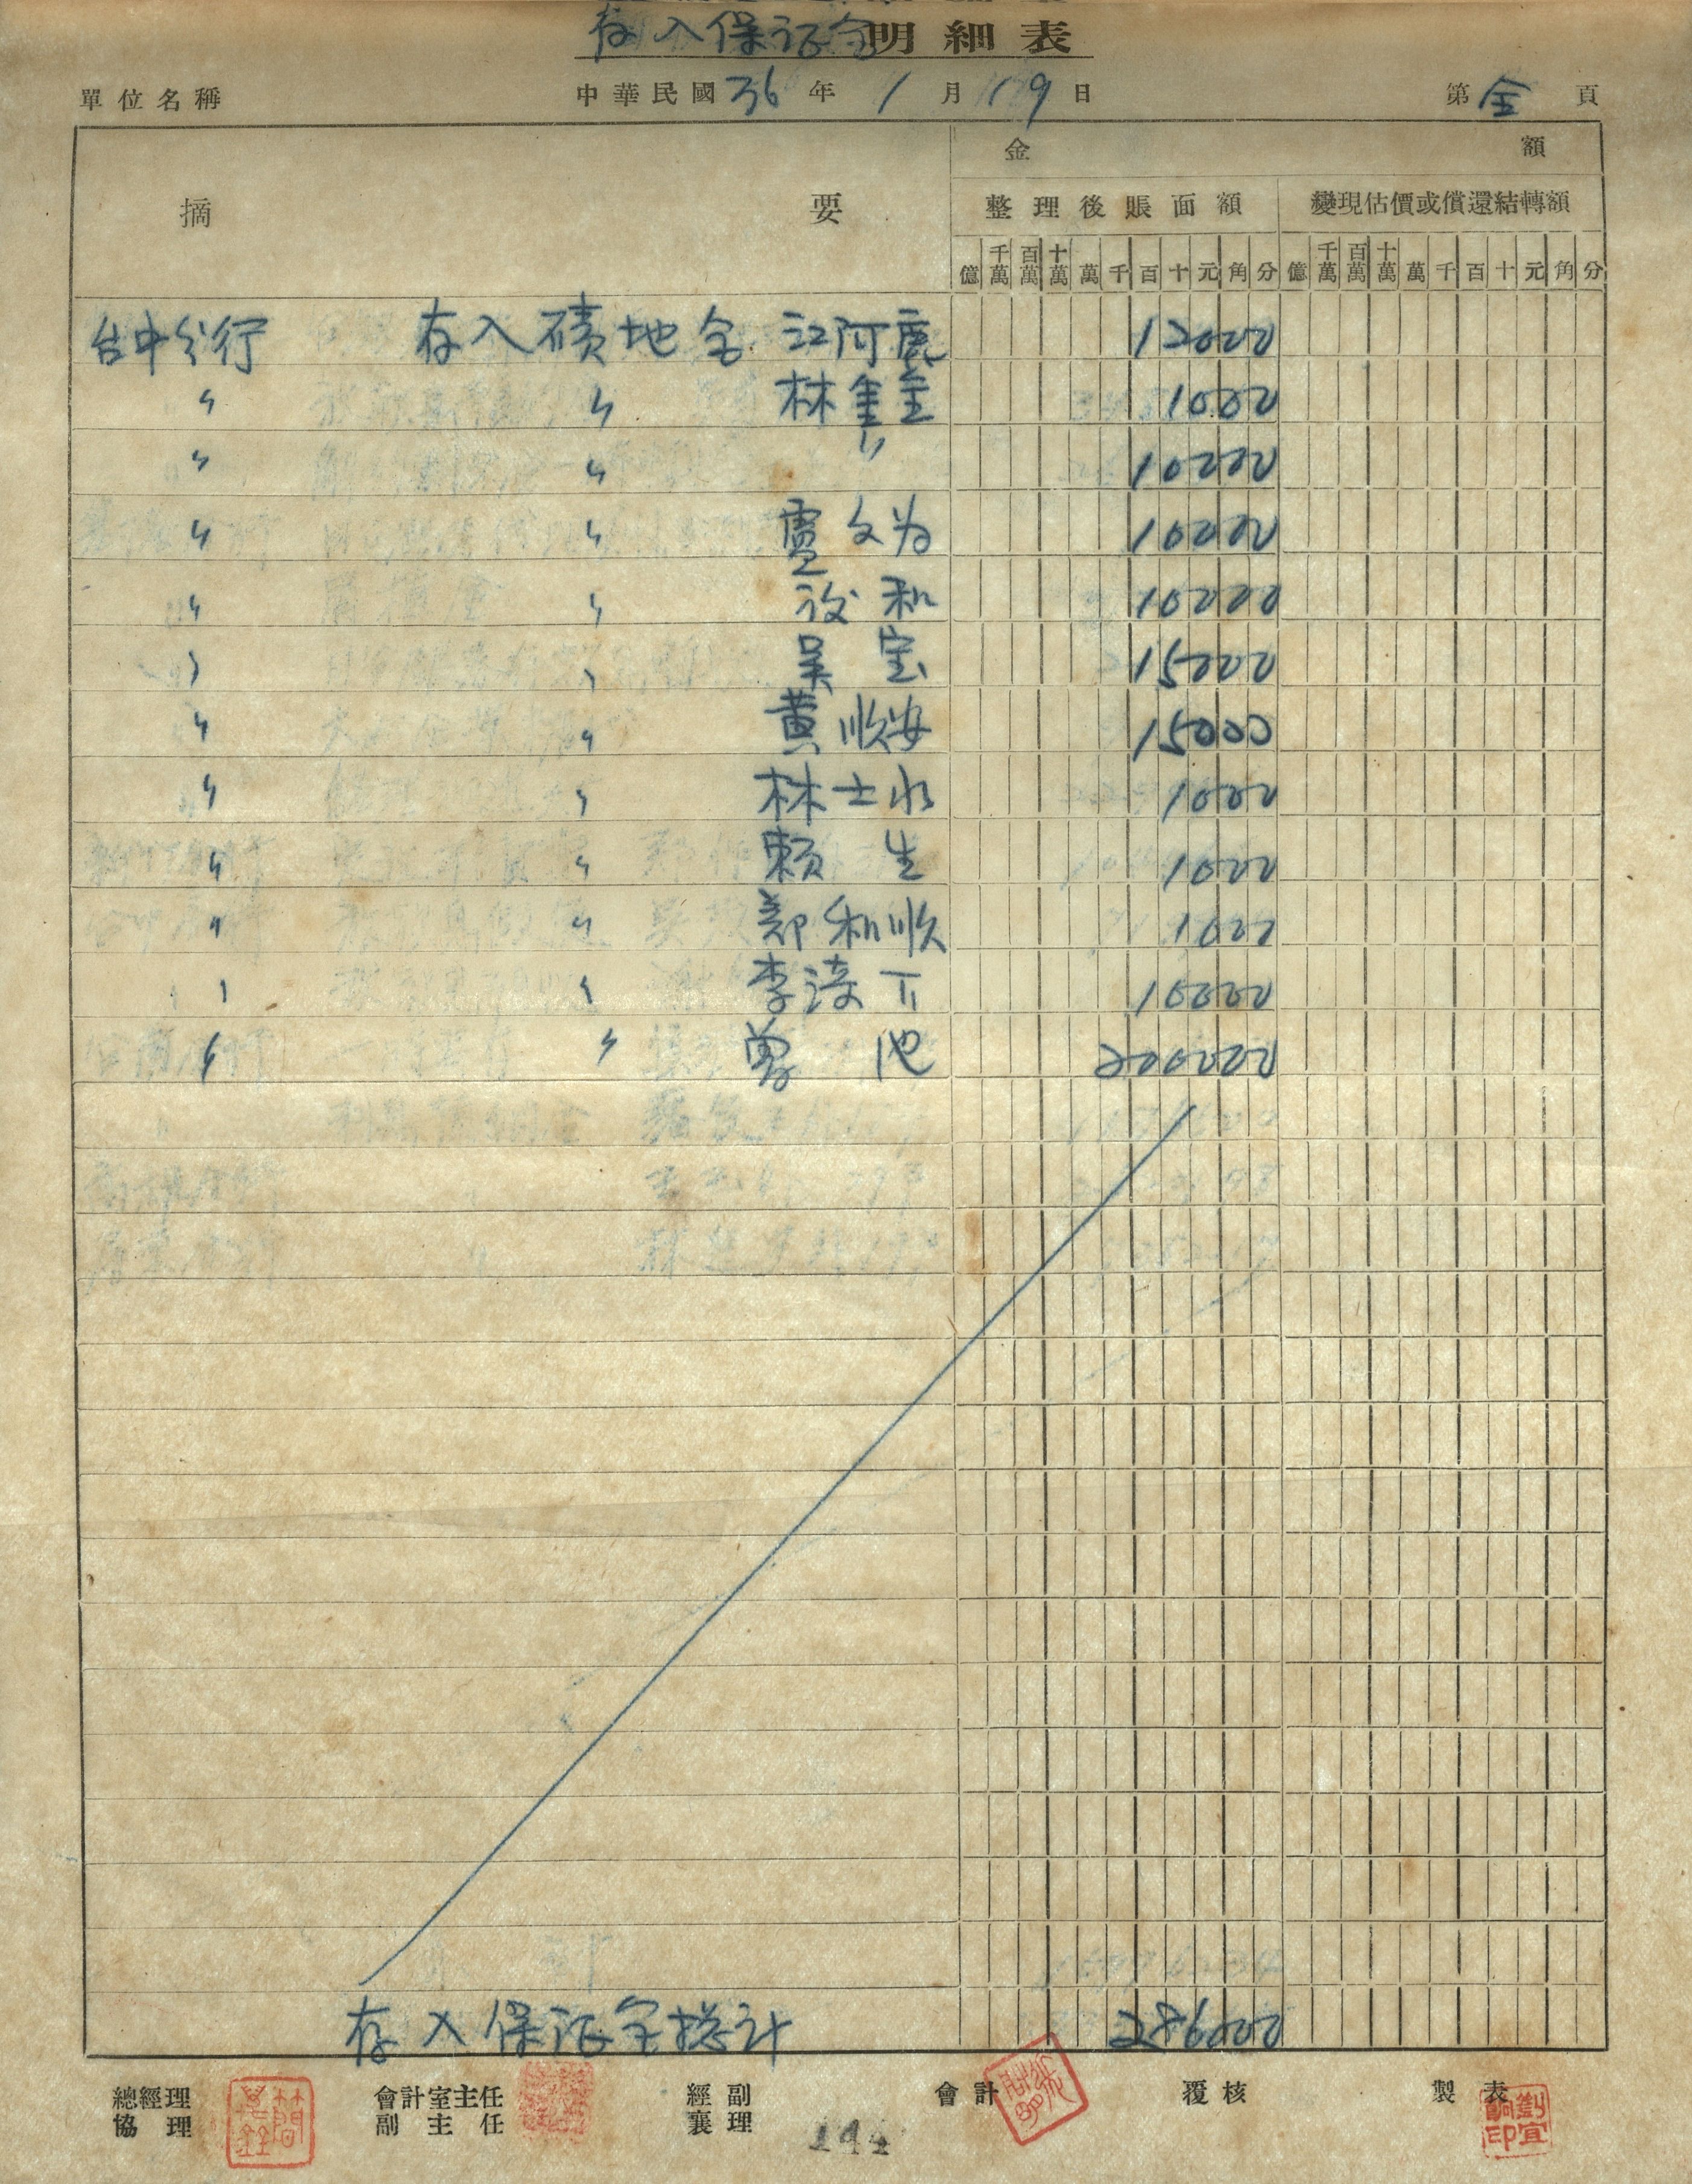 存入保証金明細表
單位名稱 中華民國36年1月19日 第全頁
金額
摘要 整理後賬面額 變現估價或償還結轉額
億 千萬 百萬 十萬 萬 千 百 十 元 角 分 億 千萬 百萬 十萬 萬 千 百 十 元 角 分
台中分行 存入磧地金 江阿鹿 12000
〃 〃 林 金 1000
〃 〃 〃 10000
〃 〃 盧文为 10000
〃 〃 和 10000
〃 〃 吴宝 15000
〃 〃 黄順安 15000
〃 〃 林士水 1000
〃 〃 賴生 1000
〃 〃 郑和順 1000
〃 〃 李 10000
〃 〃 曾池 200000
存入保証金総計 286000
總經理 會計室主任 經副 會計 覆核 製表
協理 副主任 襄理
194